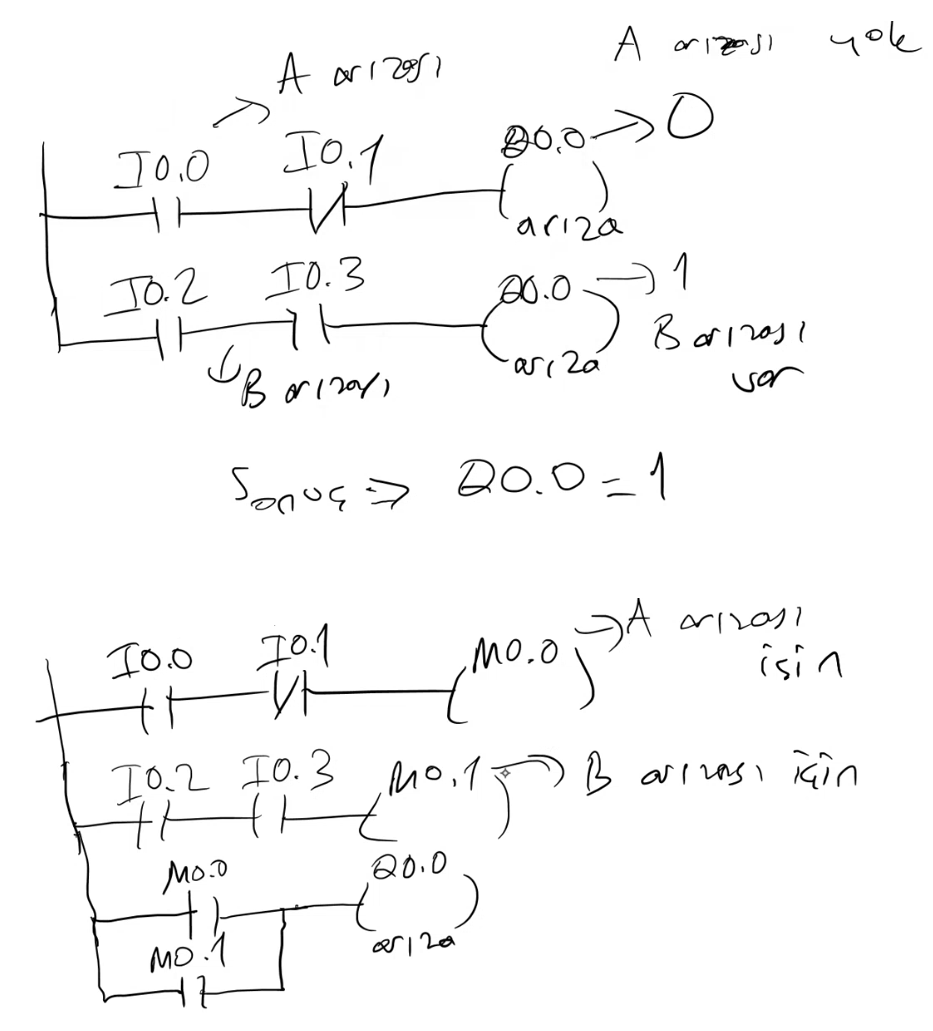 A arızası
A arızası yok
I0.0 I0.1 Q0.0 → 0
arıza
I0.2 I0.3 Q0.0 → 1
arıza
B arızası
B arızası
var
Sonuç ⇒ Q0.0 = 1
I0.0 I0.1 M0.0 → A arızası
için
I0.2 I0.3 M0.1 → B arızası için
M0.0 Q0.0
arıza
M0.1